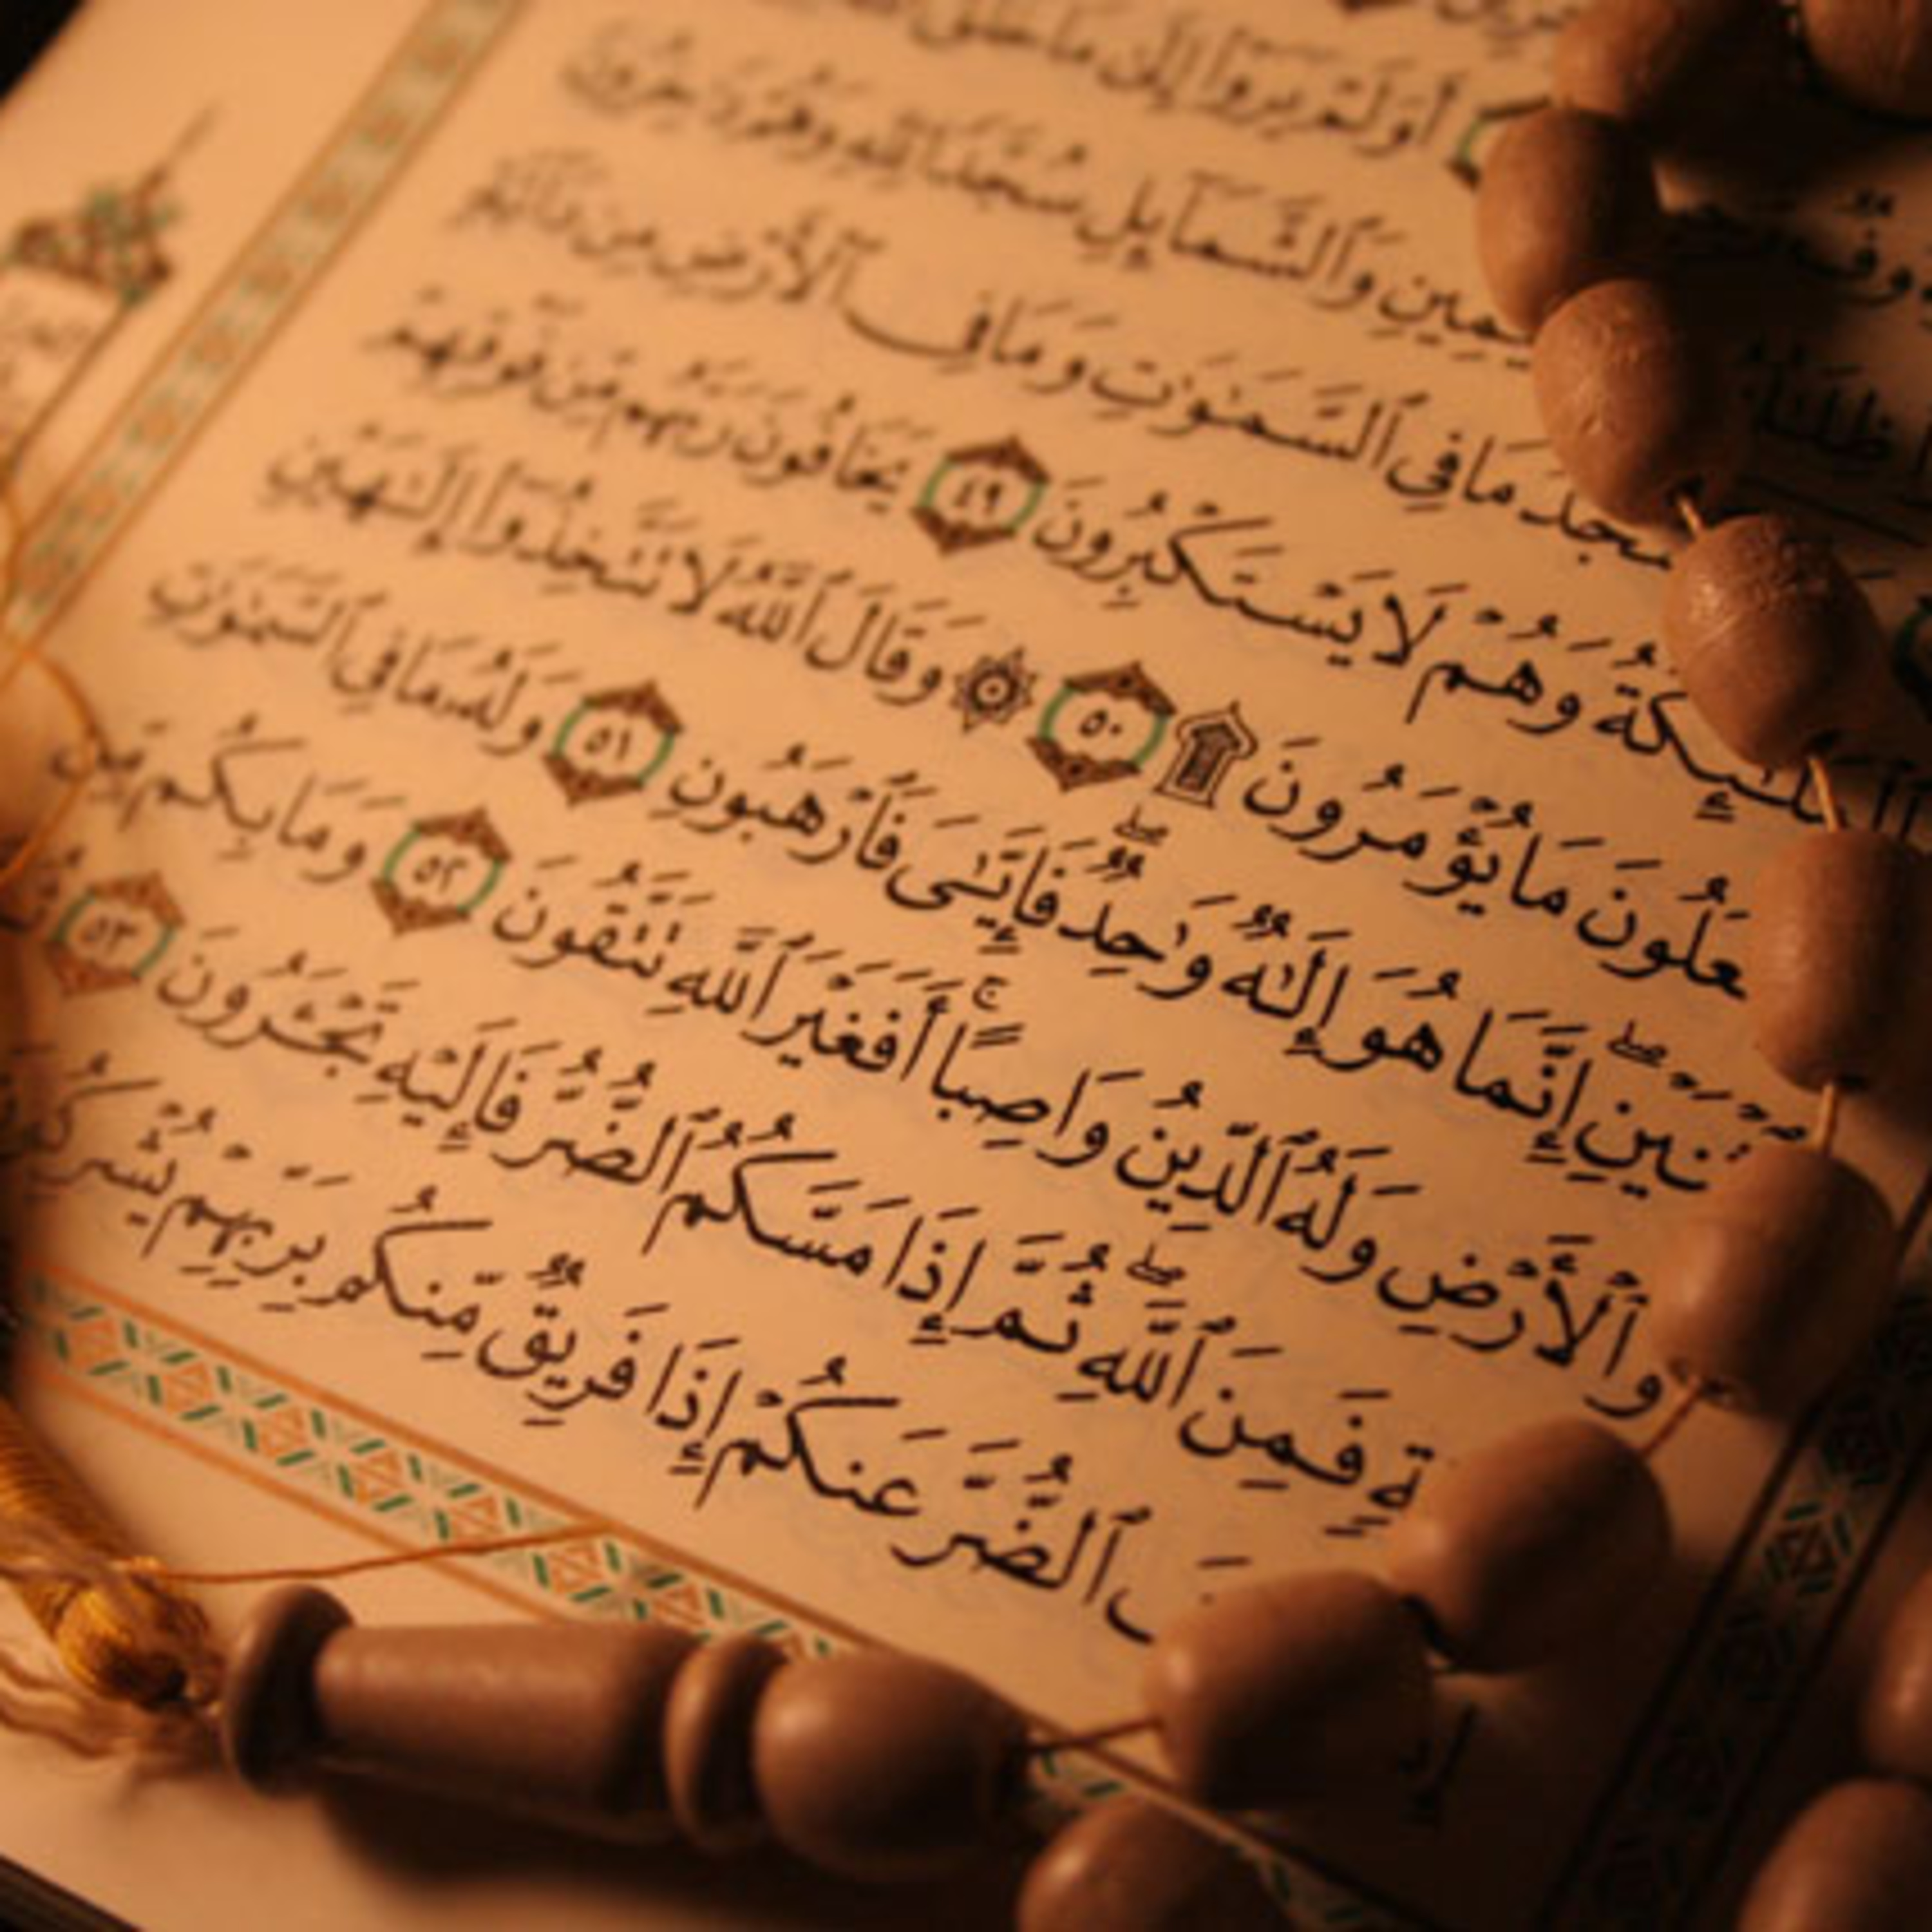 أَوَلَمْ يَرَوْا۟ إِلَىٰ مَا خَلَقَ
ـيَمِينِ وَٱلشَّمَآئِلِ سُجَّدًا لِّلَّهِ وَهُمْ دَٰخِرُونَ
ـسْجُدُ مَا فِى ٱلسَّمَٰوَٰتِ وَمَا فِى ٱلْأَرْضِ مِن دَآبَّةٍ
ٱلْمَلَٰٓئِكَةُ وَهُمْ لَا يَسْتَكْبِرُونَ ٤٩ يَخَافُونَ رَبَّهُم مِّن فَوْقِهِمْ
ـفْعَلُونَ مَا يُؤْمَرُونَ ۩ ٥٠ ۞ وَقَالَ ٱللَّهُ لَا تَتَّخِذُوٓا۟ إِلَٰهَيْنِ
ٱثْنَيْنِ ۖ إِنَّمَا هُوَ إِلَٰهٌ وَٰحِدٌ ۖ فَإِيَّٰىَ فَٱرْهَبُونِ ٥١ وَلَهُۥ مَا فِى ٱلسَّمَٰوَٰتِ
وَٱلْأَرْضِ وَلَهُ ٱلدِّينُ وَاصِبًا ۚ أَفَغَيْرَ ٱللَّهِ تَتَّقُونَ ٥٢ وَمَا بِكُم مِّن
ـةٍ فَمِنَ ٱللَّهِ ۖ ثُمَّ إِذَا مَسَّكُمُ ٱلضُّرُّ فَإِلَيْهِ تَجْـَٔرُونَ ٥٣
ٱلضُّرَّ عَنكُمْ إِذَا فَرِيقٌ مِّنكُم بِرَبِّهِمْ يُشْرِكُونَ